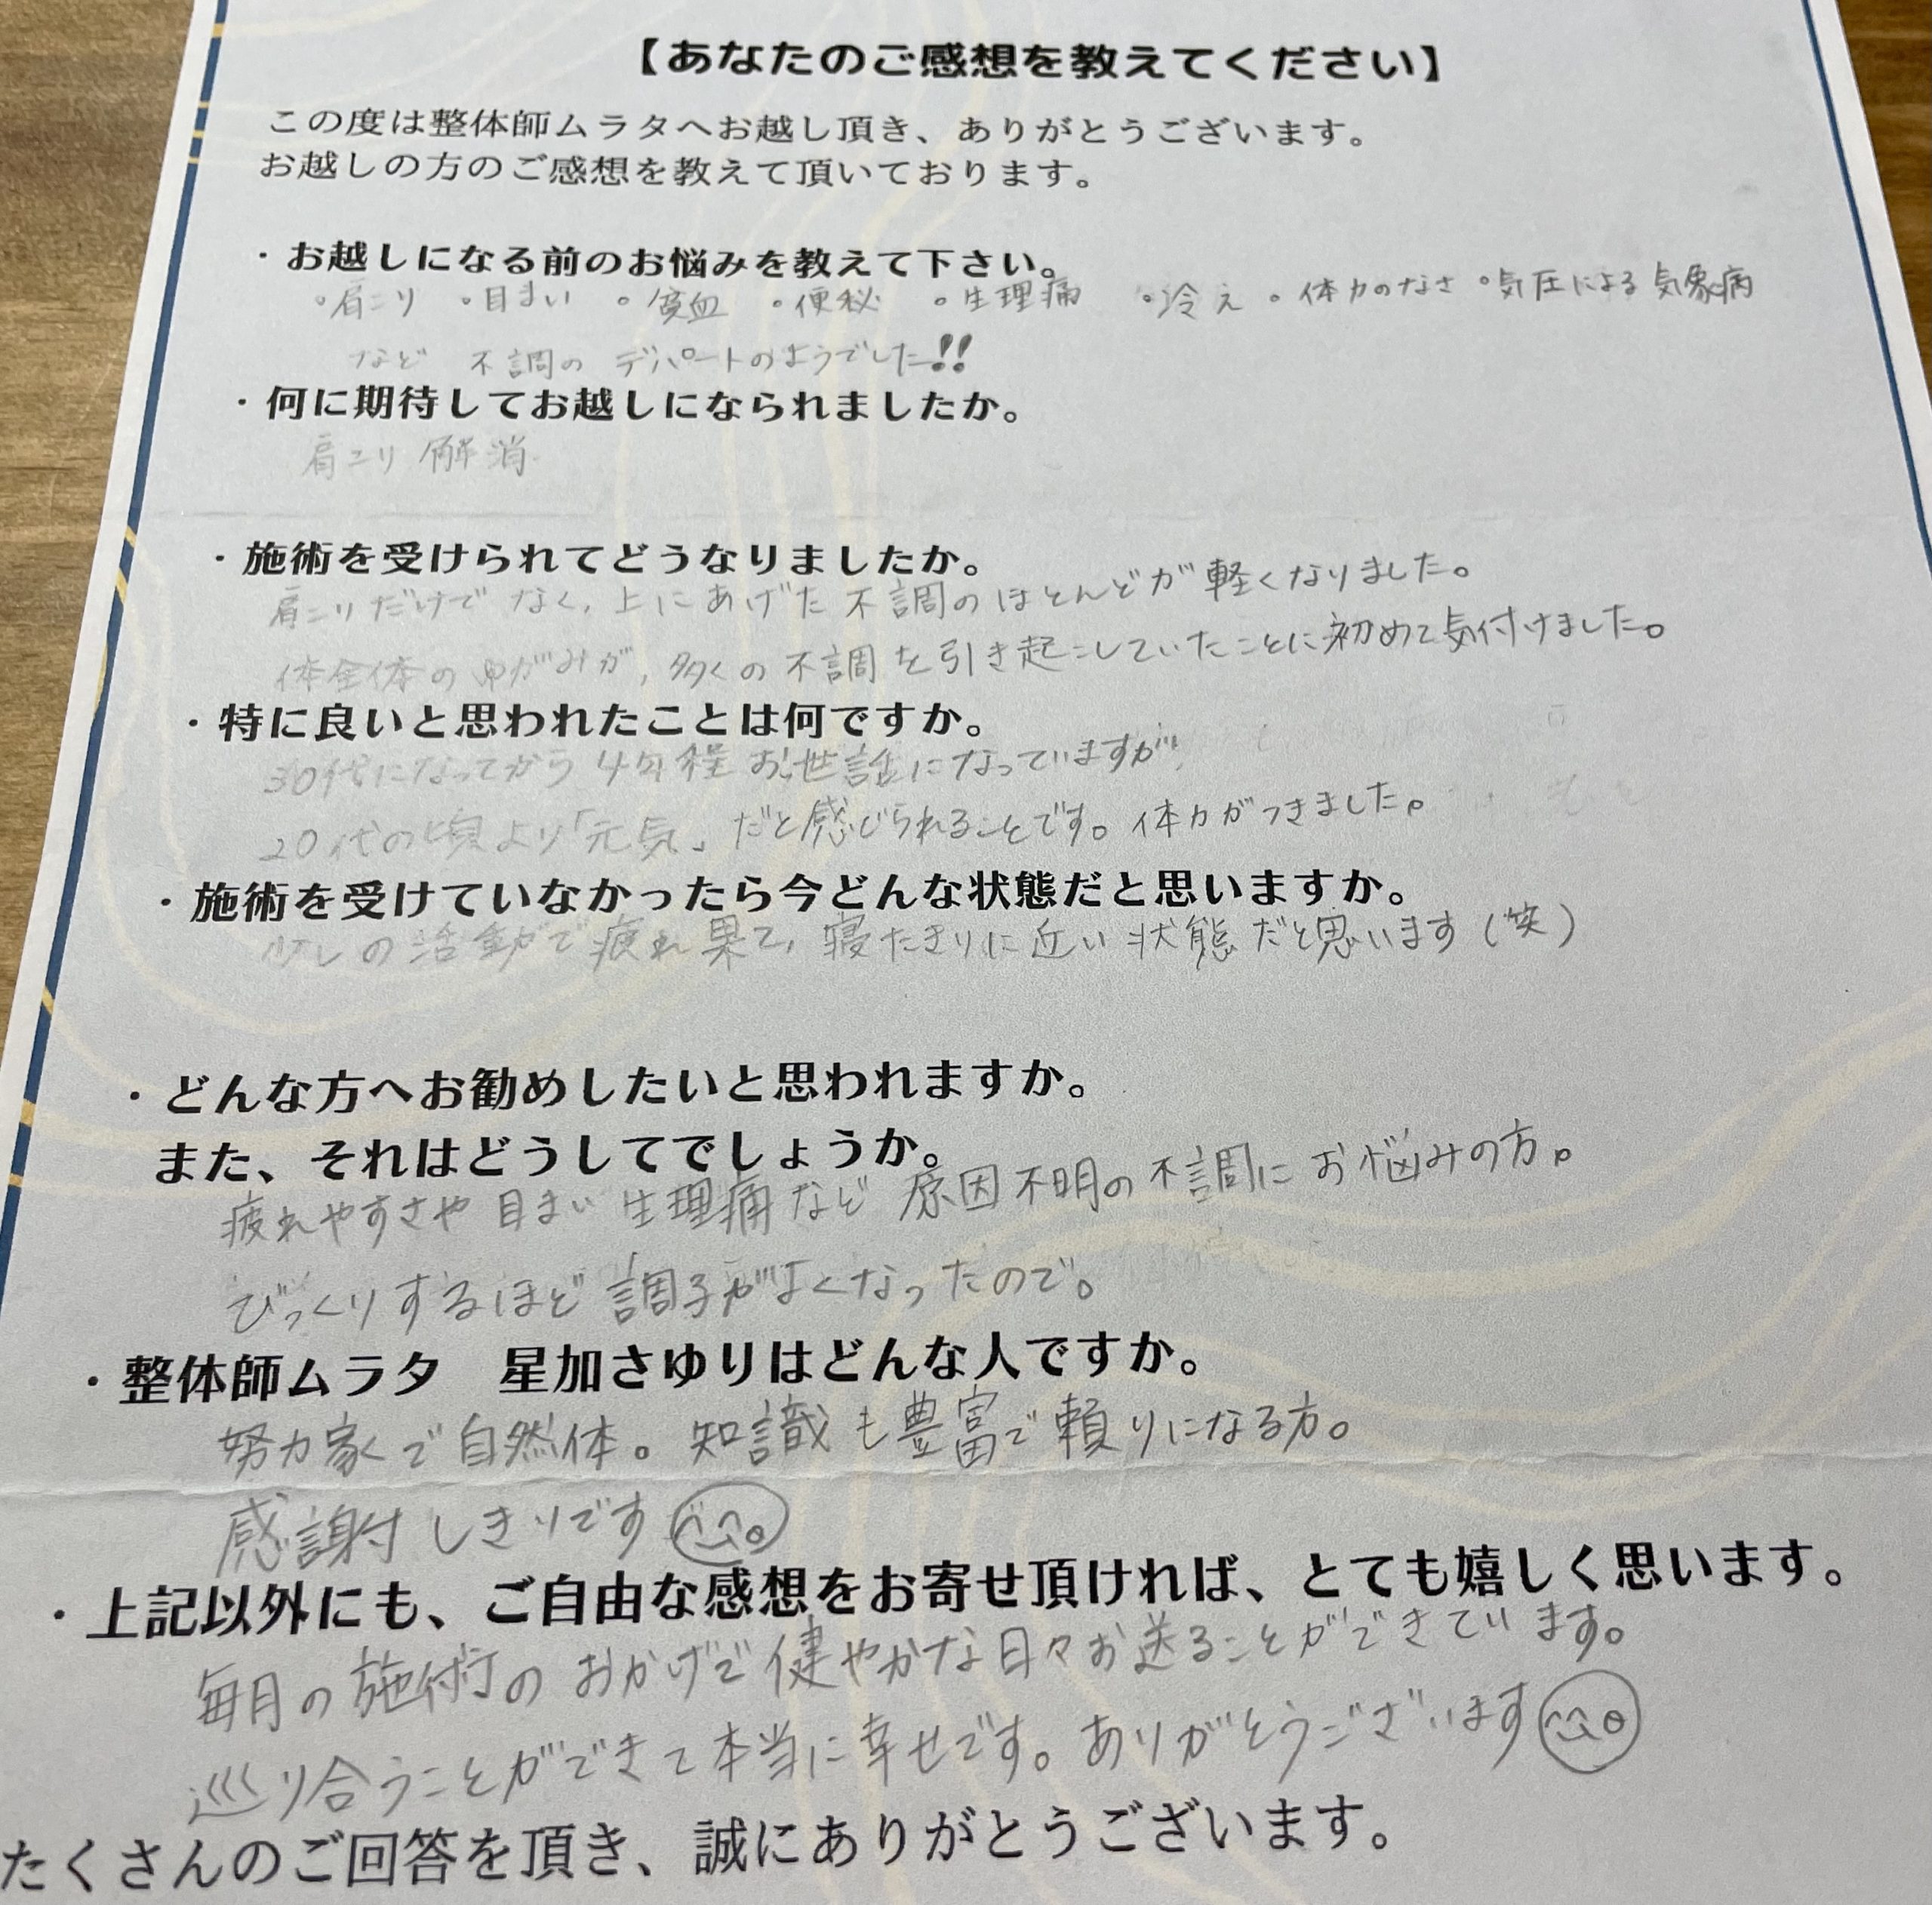 【あなたのご感想を教えてください】
この度は整体師ムラタへお越し頂き、ありがとうございます。
お越しの方のご感想を教えて頂いております。
・お越しになる前のお悩みを教えて下さい。
・肩こり ・目まい ・貧血 ・便秘 ・生理痛 ・冷え ・体力のなさ ・気圧による気象病
など 不調の デパートのようでした!!
・何に期待してお越しになられましたか。
肩こり 解消
・施術を受けられてどうなりましたか。
肩こりだけで なく、上にあげた 不調のほとんどが 軽くなりました。
体全体のゆがみが、多くの不調を引き起こしていたことに初めて気付けました。
・特に良いと思われたことは何ですか。
30代になってから 4年程 お世話になっていますが
20代の頃より「元気」だと感じられることです。体力がつきました。
・施術を受けていなかったら今どんな状態だと思いますか。
少しの活動で疲れ果て、寝たきりに近い状態だと思います(笑)
・どんな方へお勧めしたいと思われますか。
また、それはどうしてでしょうか。
疲れやすさや 目まい 生理痛など 原因不明の不調に お悩みの方。
びっくりするほど 調子がよくなったので。
・整体師ムラタ 星加さゆりはどんな人ですか。
努力家で自然体。知識も豊富で頼りになる方。
感謝しきりです
・上記以外にも、ご自由な感想をお寄せ頂ければ、とても嬉しく思います。
毎月の施術の おかげで健やかな日々お送ることができています。
巡り合うことができて本当に幸せです。ありがとうございます
たくさんのご回答を頂き、誠にありがとうございます。